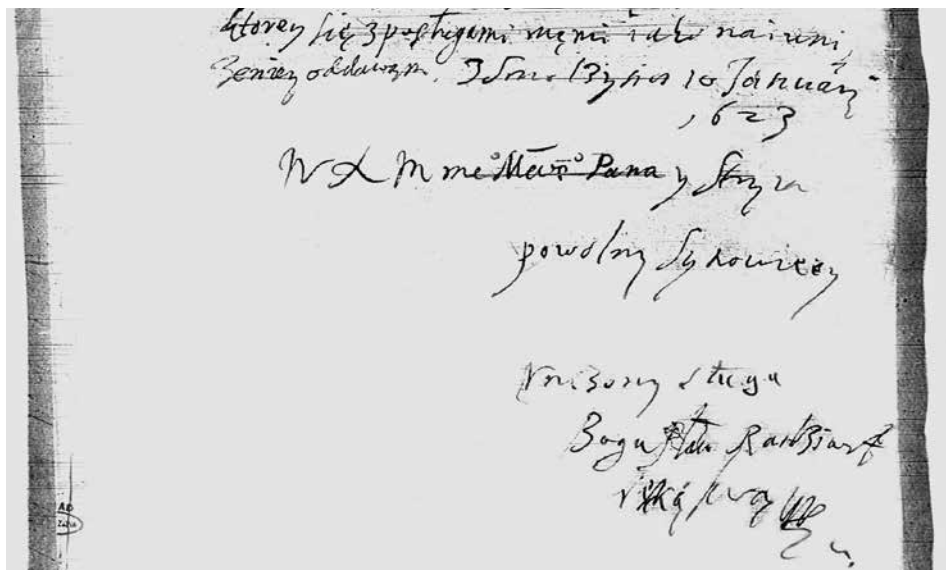 ktorey się z posługami męmi iako naiuni,
zeniey oddawszy. 10 January
1623
W X M me° Mči° Pana y Stryia
powolny Synowiec y
Vnizony sługa
Bogusław Radziwił
ręką swą